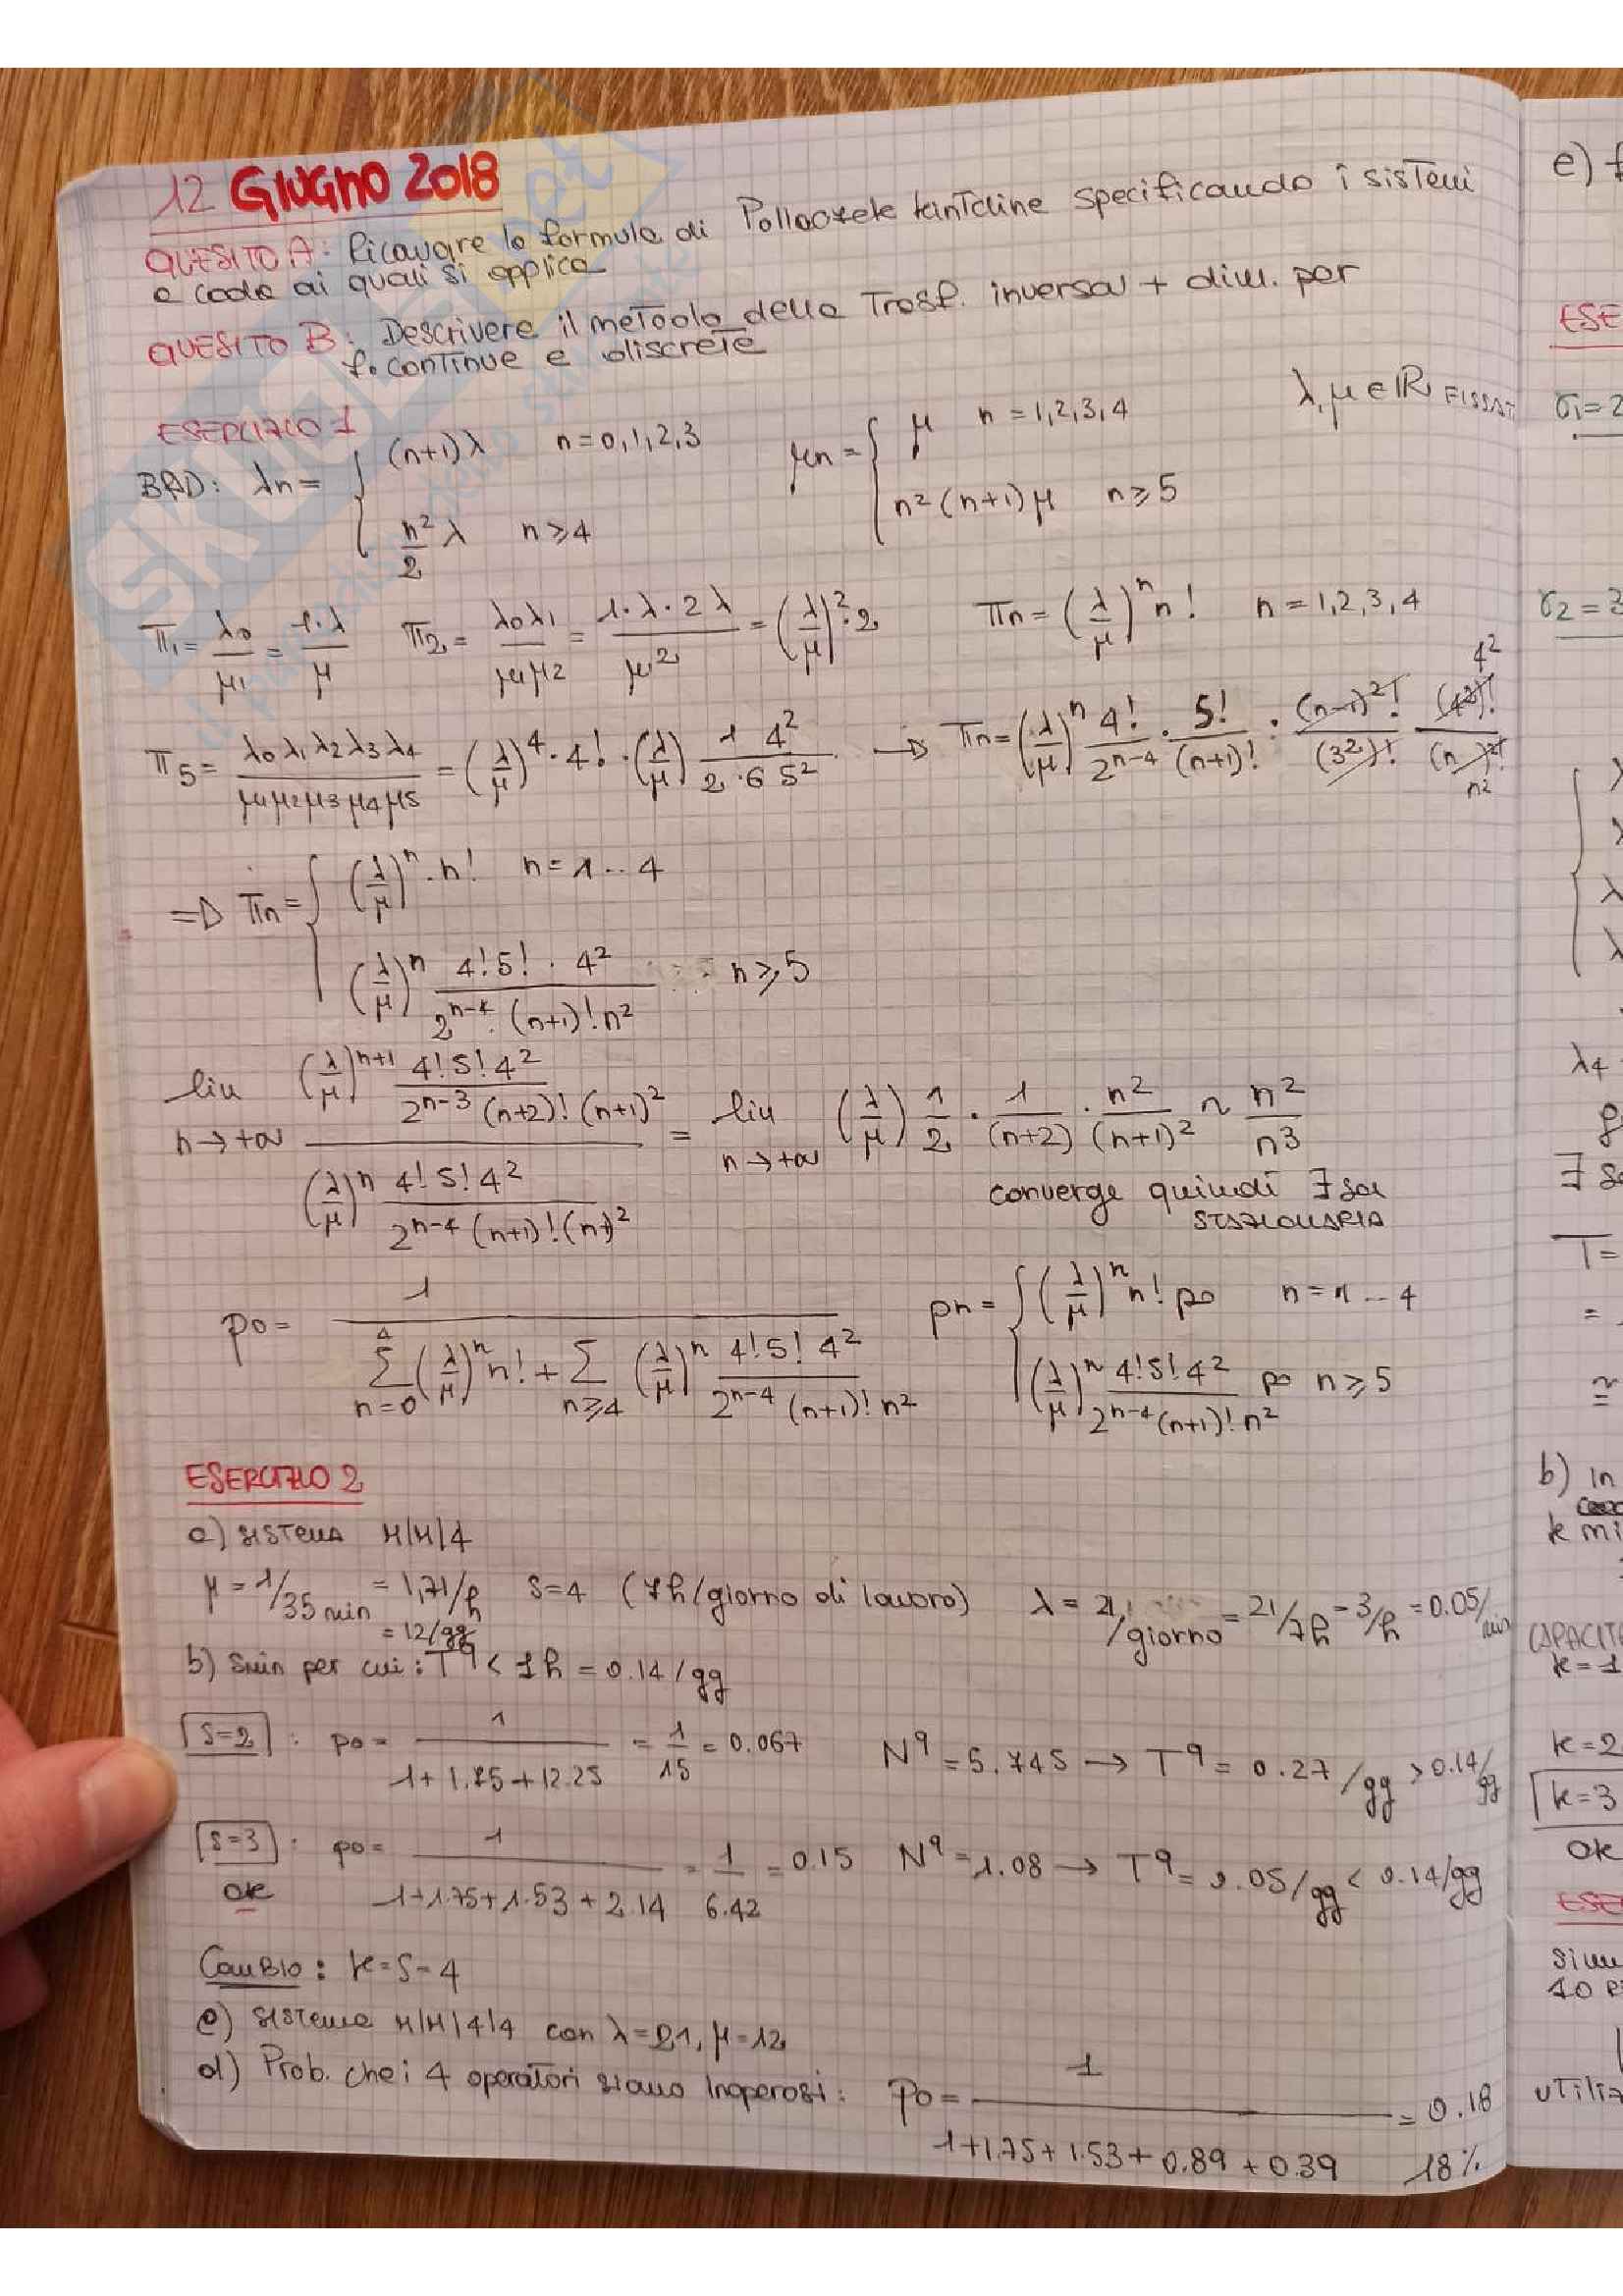 12 GIUGNO 2018
QUESITO A: Ricavare la formula di Pollaczek kintchine specificando i sistemi
a coda ai quali si applica
QUESITO B: Descrivere il metodo della Trasf. inversa + dim. per
f. continue e discrete
ESERCIZIO 1
BAD: λn = { (n+1)λ n=0,1,2,3 μn = { μ n=1,2,3,4 λ,μ ∈ ℝ FISSAT
n²/2 λ n≥4 n²(n+1)μ n≥5
π1 = λ0/μ1 = 1·λ/μ π2 = λ0λ1/μ1μ2 = 1·λ·2λ/μ² = (λ/μ)²·2 πn = (λ/μ)^n n! n=1,2,3,4
π5 = λ0λ1λ2λ3λ4/μ1μ2μ3μ4μ5 = (λ/μ)^4·4!·(λ/μ) 1 4²/2·6 5² → πn = (λ/μ)^n 4!/2^(n-4) · 5!/(n+1)! · (n-1)²!/(3²)! (4²)!/(n)²! 4² n²
⇒ πn = { (λ/μ)^n·n! n=1..4
(λ/μ)^n 4!5!·4²/2^(n-4)·(n+1)!n² n≥5
lim n→+∞ (λ/μ)^(n+1) 4!5!4²/2^(n-3)(n+2)!(n+1)² / (λ/μ)^n 4!5!4²/2^(n-4)(n+1)!(n)² = lim n→+∞ (λ/μ) 1/2 · 1/(n+2) · n²/(n+1)² ~ n²/n³
converge quindi ∃ sol
STAZIONARIA
p0 = 1/Σ n=0 4 (λ/μ)^n n! + Σ n≥4 (λ/μ)^n 4!5!4²/2^(n-4)(n+1)!n² pn = { (λ/μ)^n n! p0 n=1...4
(λ/μ)^n 4!5!4²/2^(n-4)(n+1)!n² p0 n≥5
ESERCIZIO 2
a) sistema M|M|4
μ = 1/35min = 1,71/h s=4 (7h/giorno di lavoro) λ = 21/giorno = 21/7h = 3/h = 0.05/min
= 12/gg
b) smin per cui: T^q < 1h = 0.14/gg
s=2 : p0 = 1/1+1.75+12.25 = 1/15 = 0.067 N^q = 5.745 → T^q = 0.27/gg > 0.14/gg
s=3 : p0 = 1/1+1.75+1.53+2.14 = 1/6.42 = 0.15 N^q = 1.08 → T^q = 0.05/gg < 0.14/gg
OK
Cambio: k=s=4
c) sistema M|M|4|4 con λ=21, μ=12
d) Prob. che i 4 operatori siano inoperosi: p0 = 1/1+1.75+1.53+0.89+0.39 = 0.18
18%
e)
ESE
σ1=2
σ2=3
λ4
∃ so
T=
=
≅
b) in
k mi
CAPACITÀ
k=1
k=2
k=3
OK
ESE
simu
40
utiliz